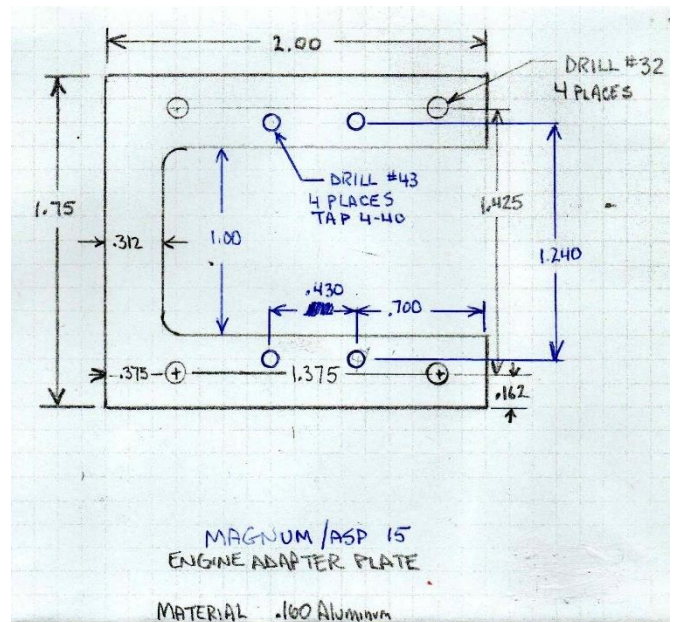 2.00
DRILL #32
4 PLACES
DRILL #43
4 PLACES
TAP 4-40
1.75
1.425
.312
1.00
1.240
.430
.700
.375
1.375
.162
MAGNUM/ASP 15
ENGINE ADAPTER PLATE
MATERIAL .160 Aluminum